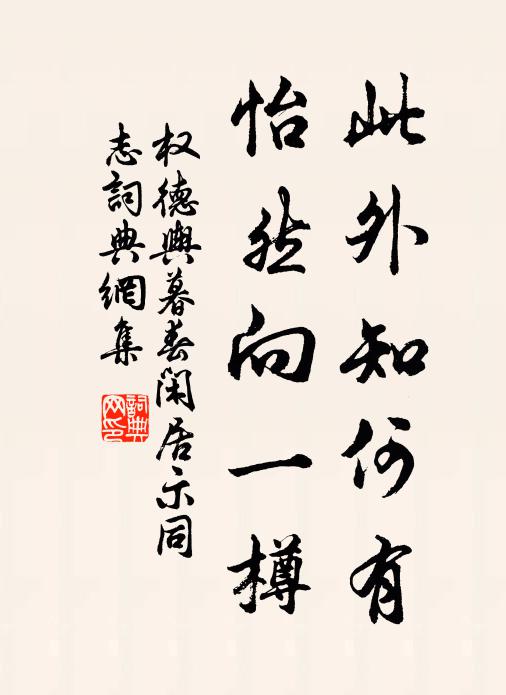 此外知何有
怡然向一樽
权德輿暮春閑居示同
志詞典網集
詞典
网印